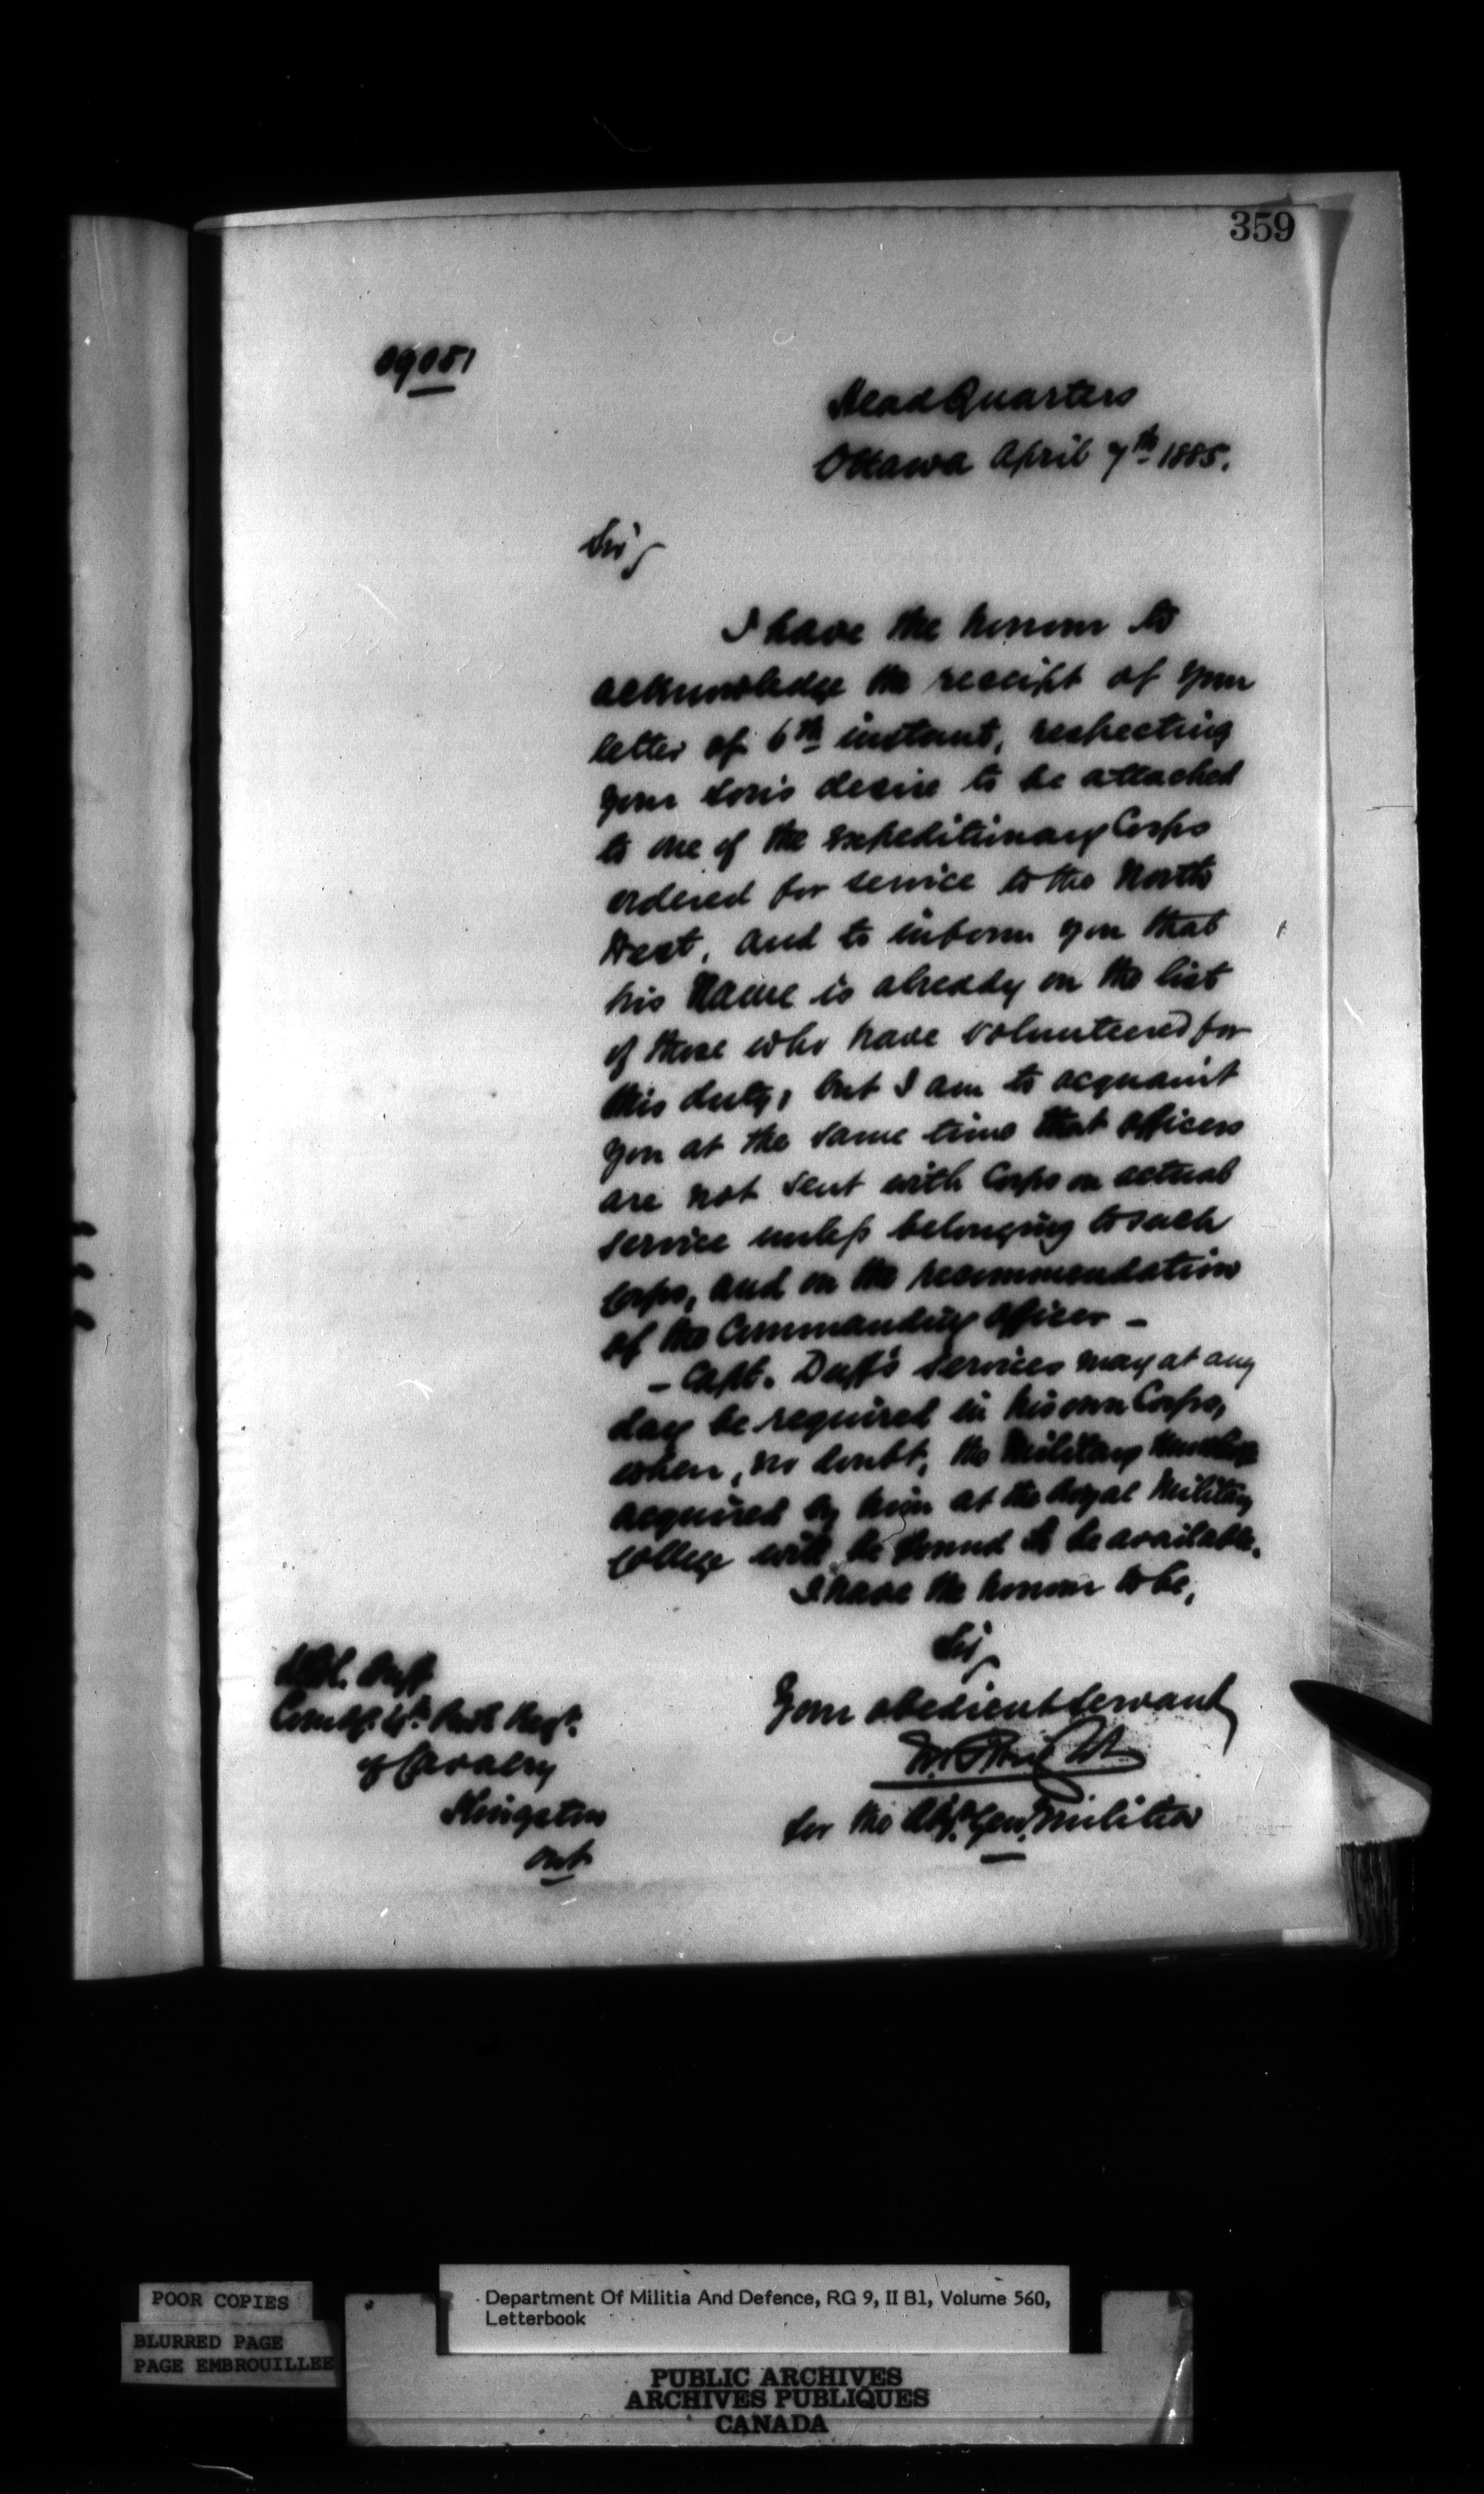 359
09051
Head Quarters
Ottawa April 7th 1885.
Sir,
I have the honour to
acknowledge the receipt of your
letter of 6th instant, respecting
your son's desire to be attached
to one of the expeditionary Corps
ordered for service to the North
West, and to inform you that
his name is already on the list
of those who have volunteered for
this duty, but I am to acquaint
you at the same time that officers
are not sent with Corps on actual
service unless belonging to such
Corps, and on the recommendation
of the Commanding Officer -
- Capt. Duff's services may at any
day be required in his own Corps,
when, no doubt, the Military knowledge
acquired by him at the Royal Military
College will be found to be available.
I have the honour to be,
Sir,
Your obedient servant
for the Adjt. Genl. Militia
Lt Col. Duff
Comdg. 4th Regt.
of Cavalry
Kingston
Ont
POOR COPIES
BLURRED PAGE
PAGE EMBROUILLEE
Department Of Militia And Defence, RG 9, II B1, Volume 560,
Letterbook
PUBLIC ARCHIVES
ARCHIVES PUBLIQUES
CANADA